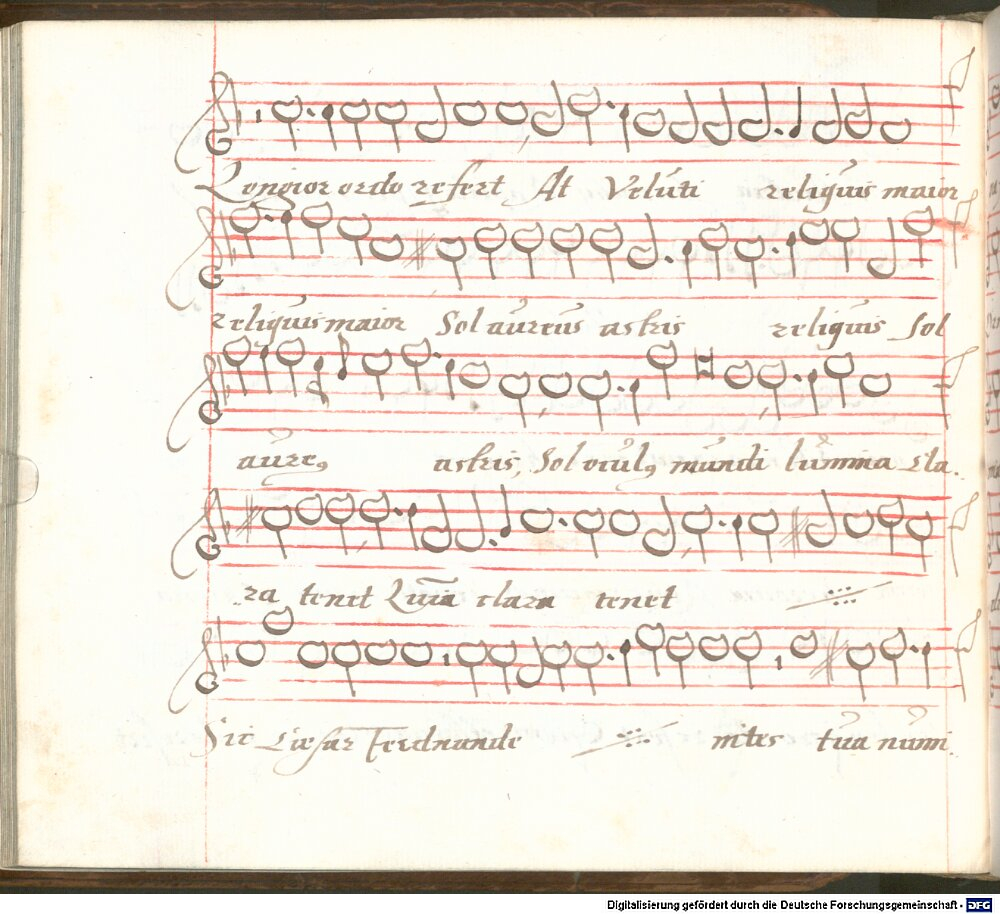 Longior ordo refert At Veluti reliquis maior
reliquis maior Sol aureus astris reliquis Sol
aure9 astris, Sol ocul9 mundi lumina cla.
ra tenet Quia clara tenet
Sic Caesar Ferdnande mites tua numi.
Digitalisierung gefördert durch die Deutsche Forschungsgemeinschaft - DFG